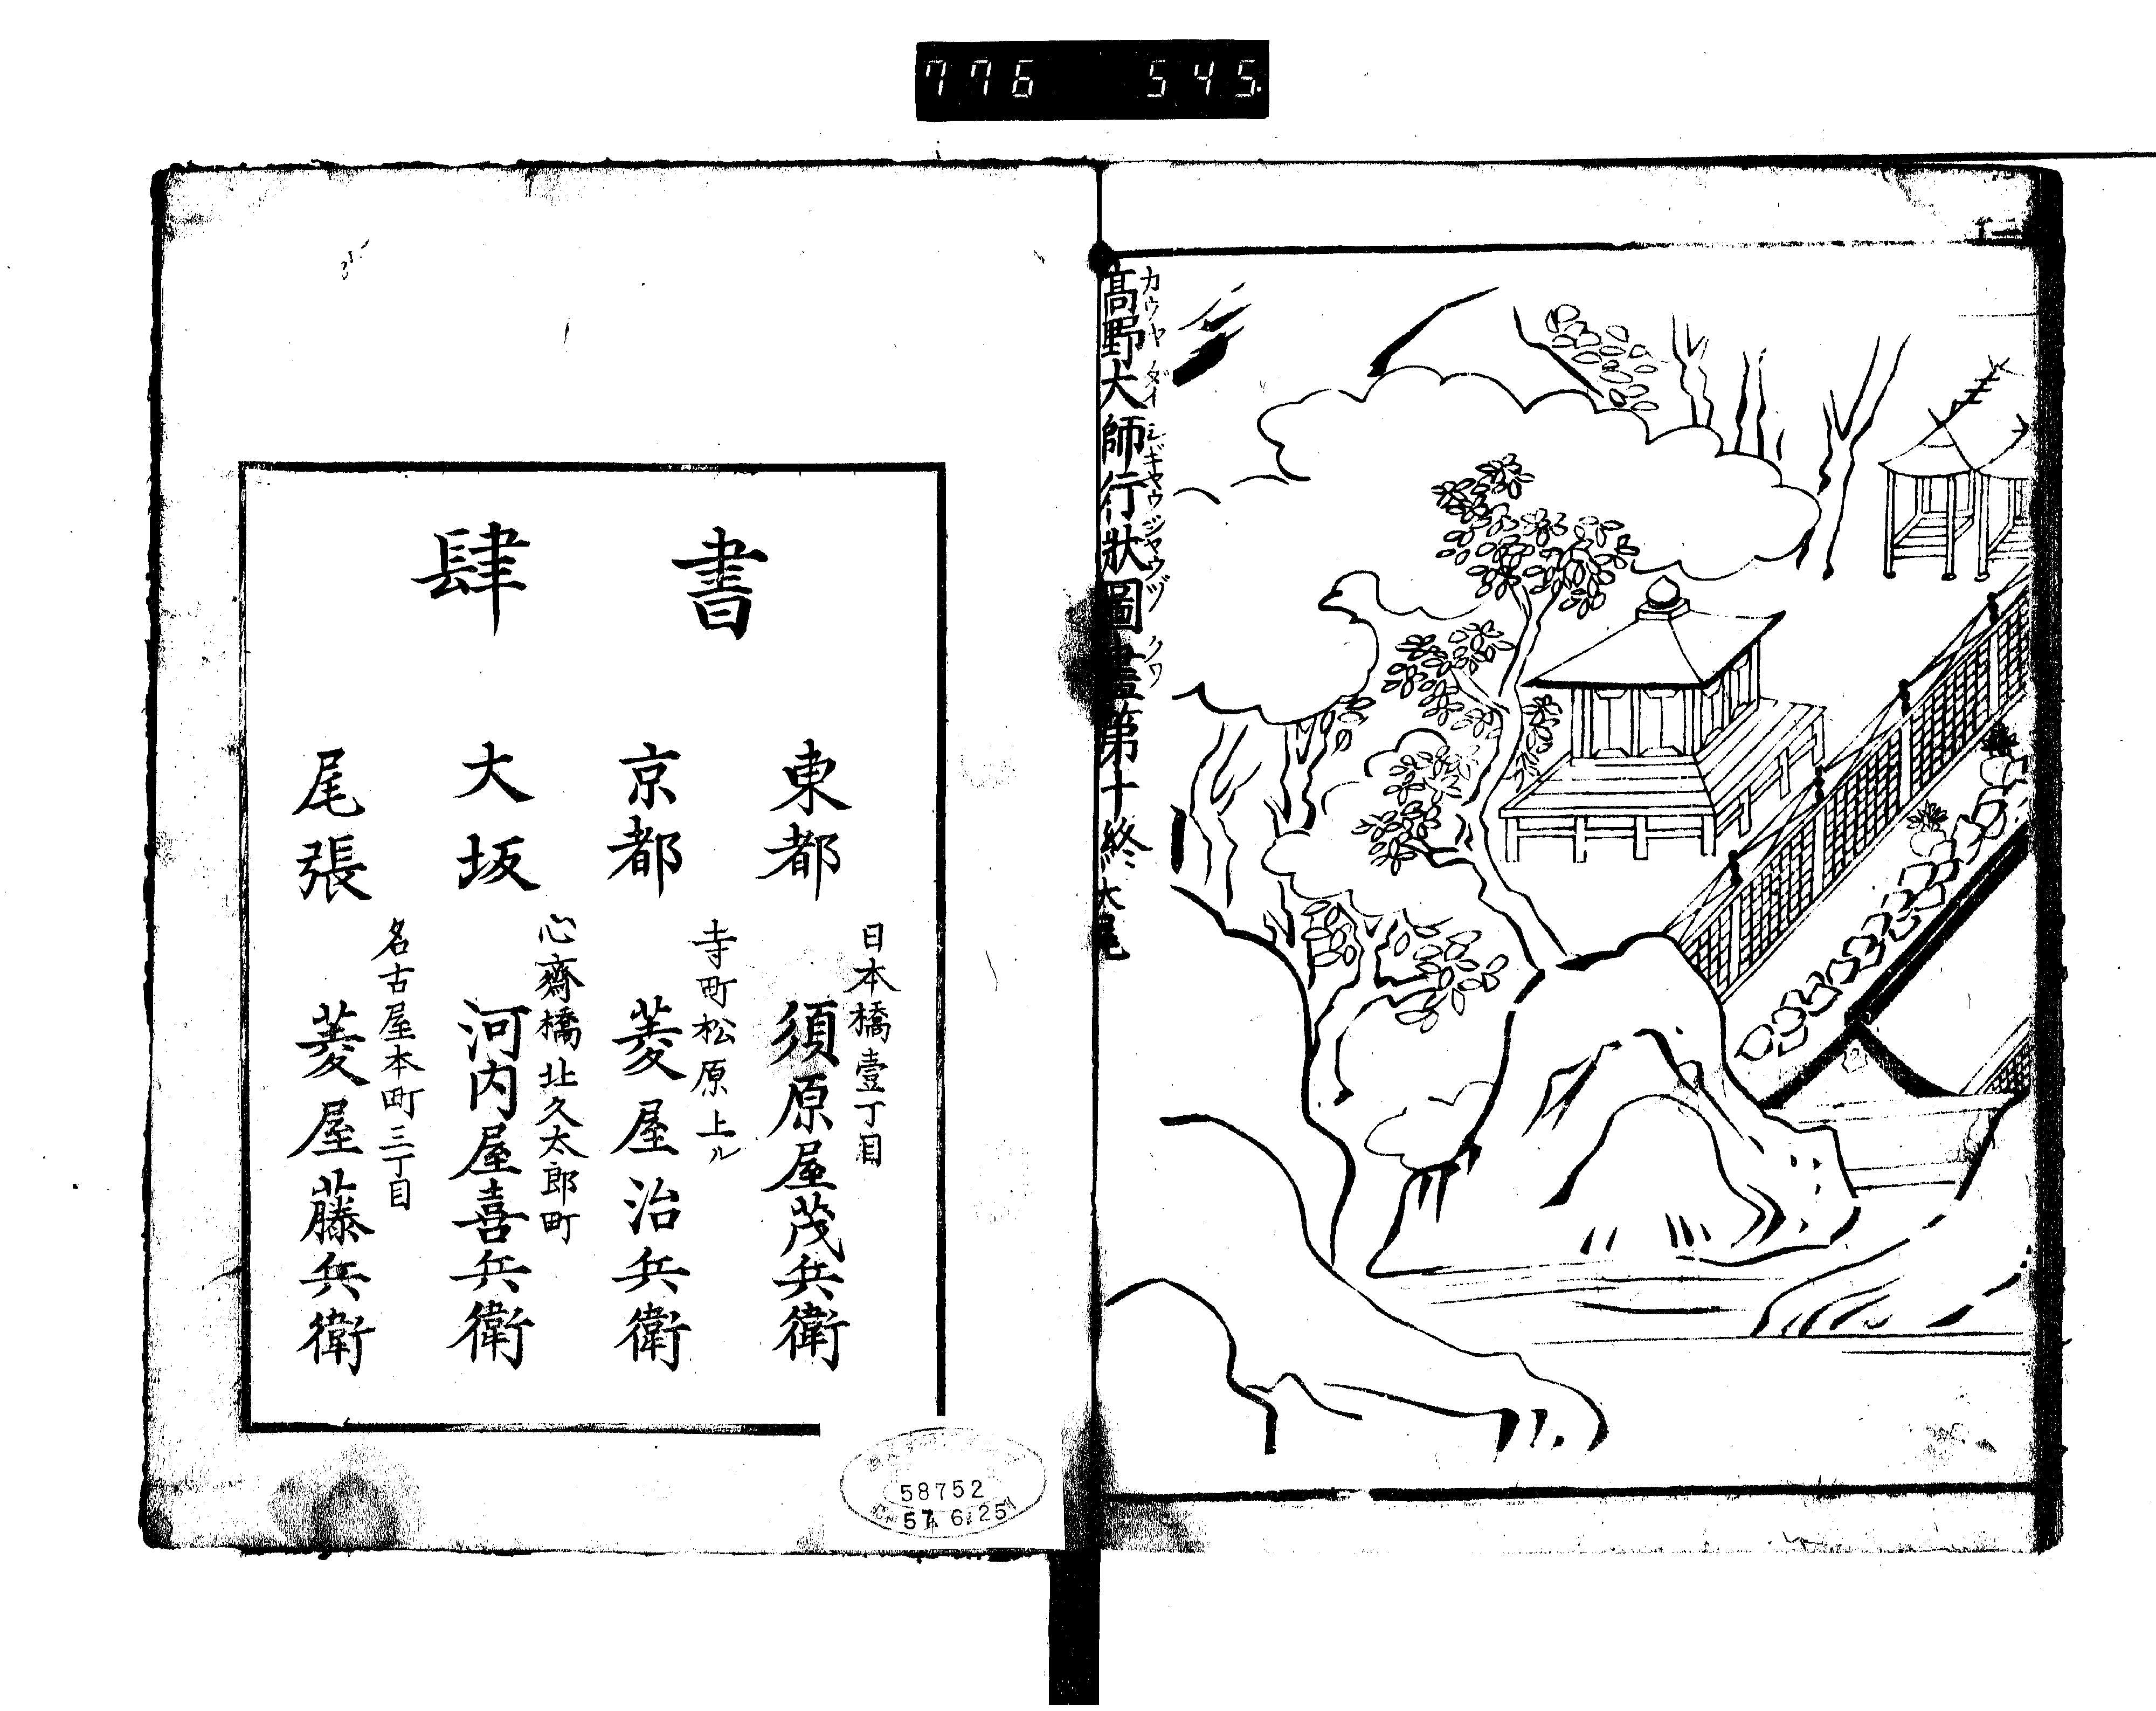 776 545
高野大師行狀圖畫第十終大尾
カウヤ ダイシギヤウジヤウヅ クワ
書肆
東都 日本橋壹丁目 須原屋茂兵衛
京都 寺町松原上ル 菱屋治兵衛
大坂 心齋橋北久太郎町 河内屋喜兵衛
尾張 名古屋本町三丁目 菱屋藤兵衛
58752
57 6 25